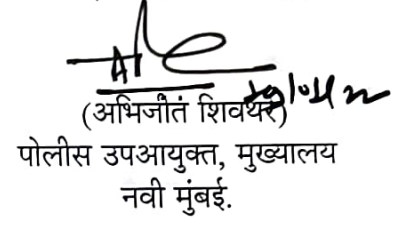 (अभिजीतं शिवथरे)
पोलीस उपआयुक्त, मुख्यालय
नवी मुंबई.